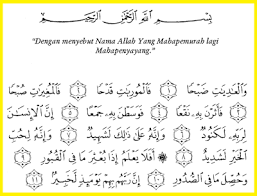 بِسْمِ اللَّهِ الرَّحْمَٰنِ الرَّحِيمِ
"Dengan menyebut Nama Allah Yang Mahapemurah lagi
Mahapenyayang."
وَالْعَادِيَاتِ ضَبْحًا ۝١ فَالْمُورِيَاتِ قَدْحًا ۝٢ فَالْمُغِيرَاتِ صُبْحًا
۝٣ فَأَثَرْنَ بِهِ نَقْعًا ۝٤ فَوَسَطْنَ بِهِ جَمْعًا ۝٥ إِنَّ الْإِنْسَانَ
لِرَبِّهِ لَكَنُودٌ ۝٦ وَإِنَّهُ عَلَىٰ ذَٰلِكَ لَشَهِيدٌ ۝٧ وَإِنَّهُ لِحُبِّ
الْخَيْرِ لَشَدِيدٌ ۝٨ أَفَلَا يَعْلَمُ إِذَا بُعْثِرَ مَا فِي الْقُبُورِ ۝٩
وَحُصِّلَ مَا فِي الصُّدُورِ ۝١٠ إِنَّ رَبَّهُمْ بِهِمْ يَوْمَئِذٍ لَخَبِيرٌ ۝١١